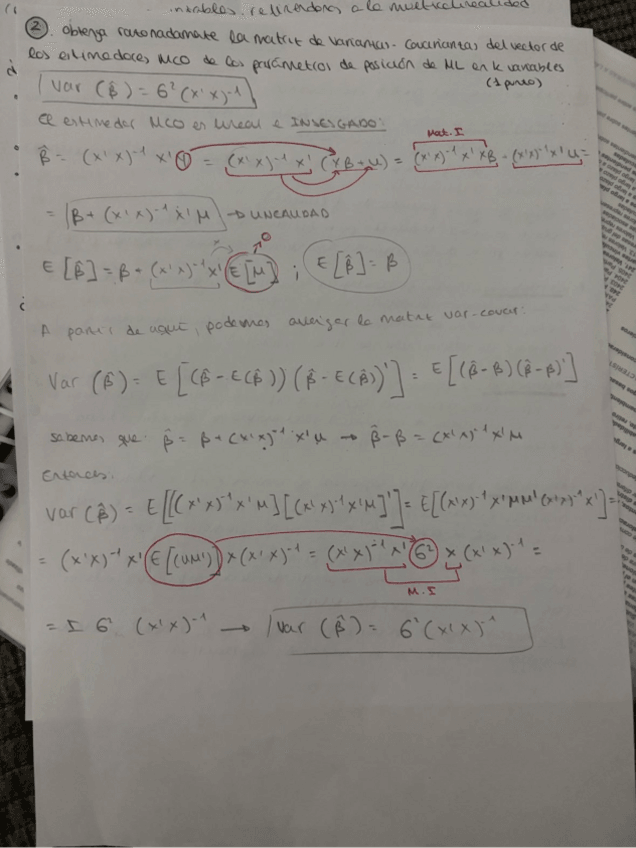 intables, refiriendonos a la multicolinealidad
② . obtenga razonadamente la matriz de varianzas - covarianzas del vector de
los estimadores MCO de los parámetros de posición de ML en k variables
(1 punto)
Var (β̂) = σ² (x'x)⁻¹
El estimador MCO es lineal e INSESGADO:
Mat. I
β̂ = (x'x)⁻¹ x' Y = (x'x)⁻¹ x' (xβ + u) = (x'x)⁻¹ x' xβ + (x'x)⁻¹ x' u =
= β + (x'x)⁻¹ x' u → LINEALIDAD
0
E [β̂] = β + (x'x)⁻¹ x' E [u] ; E [β̂] = β
A partir de aquí, podemos averiguar la matriz var-covar:
Var (β̂) = E [(β̂ - E(β̂)) (β̂ - E(β̂))'] = E [(β̂ - β) (β̂ - β)']
sabemos que: β̂ = β + (x'x)⁻¹ x' u → β̂ - β = (x'x)⁻¹ x' u
Entonces:
Var (β̂) = E [[(x'x)⁻¹ x' u] [(x'x)⁻¹ x' u]'] = E [(x'x)⁻¹ x' u u' (x'x)⁻¹ x'] =
= (x'x)⁻¹ x' E [(uu')] x (x'x)⁻¹ = (x'x)⁻¹ x' σ² x (x'x)⁻¹ =
M. I
= I σ² (x'x)⁻¹ → Var (β̂) = σ² (x'x)⁻¹